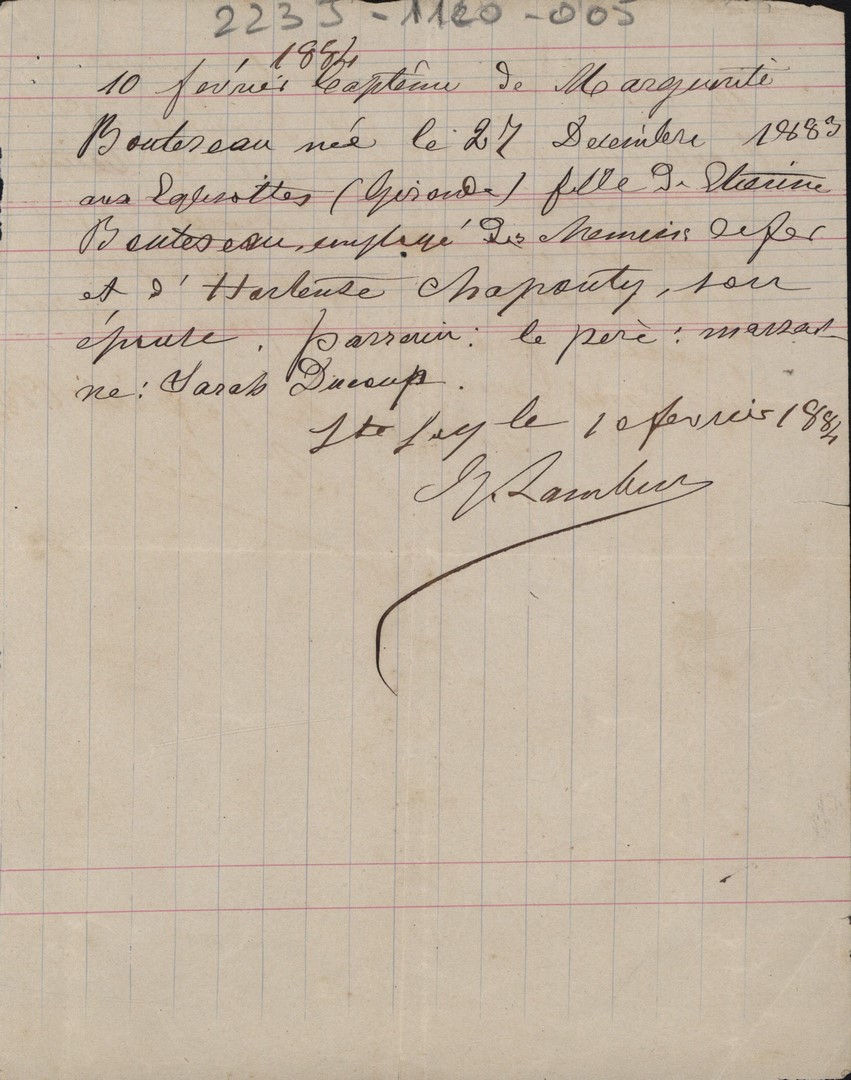 223J-1120-005
1884
10 février Baptême de Marguerite
Bouteseau née le 27 Decembre 1883
aux Eglisottes (Gironde) fille de Etienne
Bouteseau, employé des chemins de fer
et d'Hortense Chapouty, son
épouse. parrain: le père: marrai-
ne: Sarah Ducoup.
Ste Foy le 10 fevrier 1884